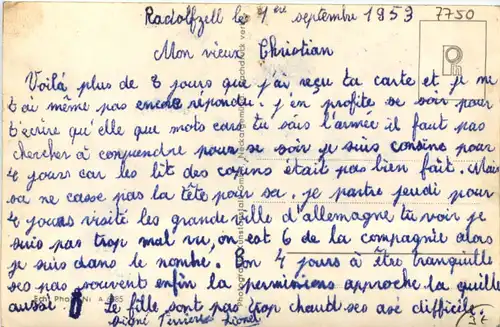 Radolfzell le 1ere septembre 1953
7750
Mon vieux Christian
Voilá plus de 8 jours que j'ai reçu ta carte et je me
t'ai même pas encore répondu. j'en profite se soir pour
t'écrire qu'elle que mots car tu sais l'armée il faut pas
chercher à comprendre pour se soir je suis consins pour
4 jours car les lit des copins était pas bien fait. Mais
sa ne casse pas la tête pour sa. je partre jeudi pour
4 jours visité les grande ville d'allemagne tu voir je
suis pas trop mal vu, on est 6 de la compagnie alors
je suis dans le nombre. Bon 4 jours à être tranquille
ses pas souvent enfin la perminions approche la quille
aussi. Le fille sont pas trop chaud ses asé difficile.